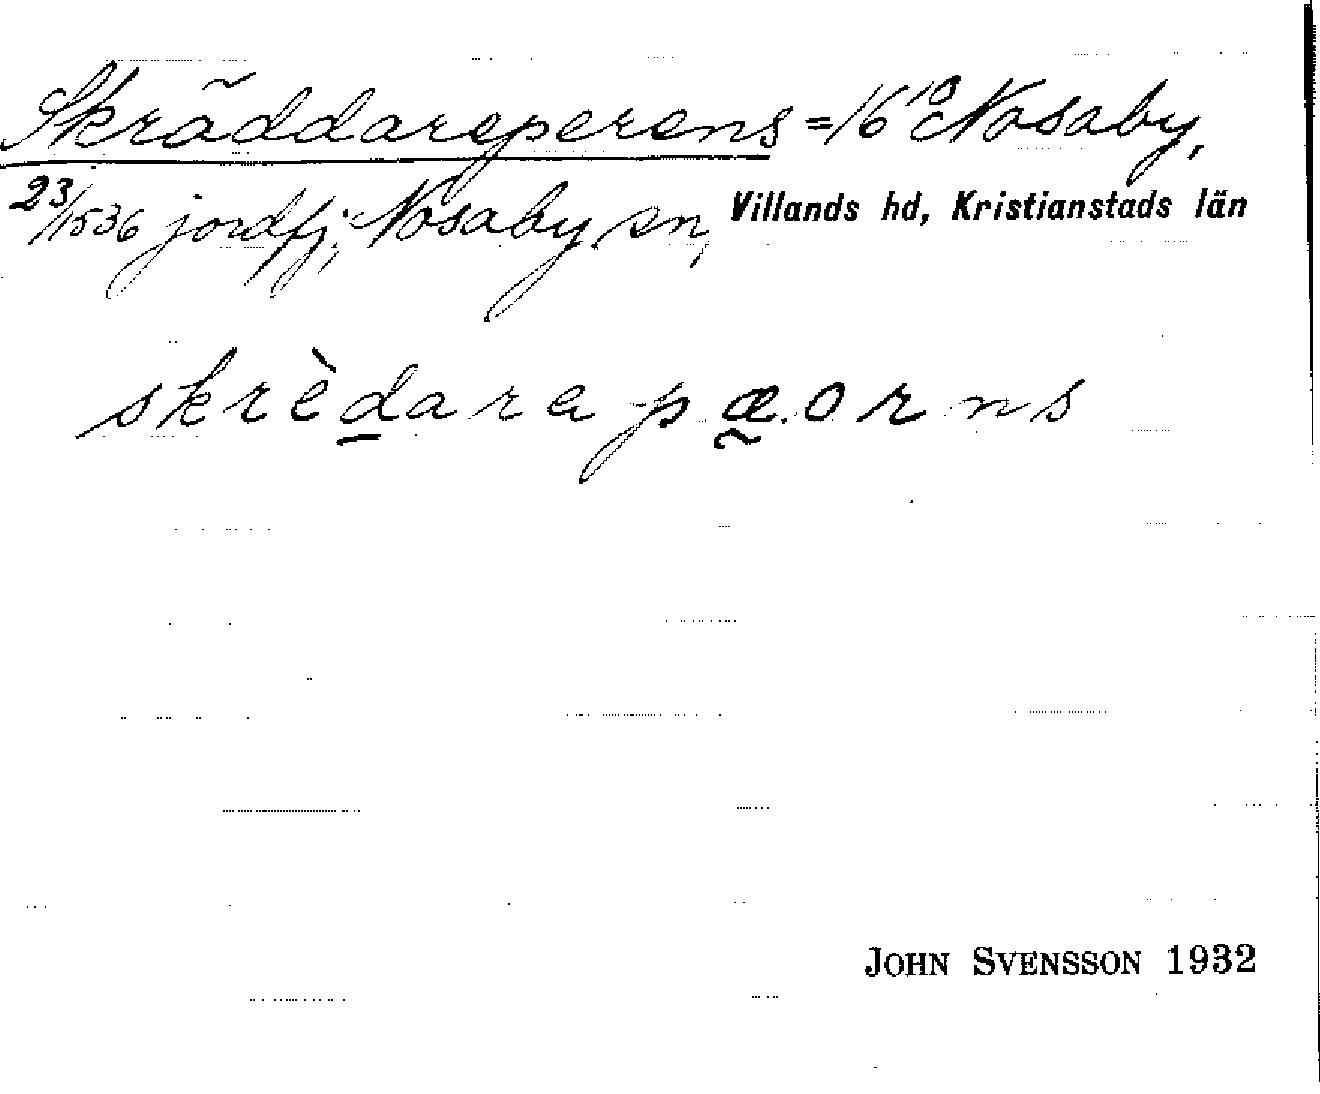 Skräddareperens = 16¹⁰ Nosaby,
23/1536 jordfj; Nosaby sn, Villands hd, Kristianstads län
skrèdarepæ.orns
JOHN SVENSSON 1932